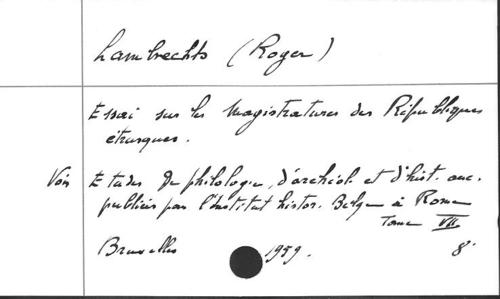 Lambrechts (Roger)
Essai sur les magistratures des Républiques
étrusques.
Voir Etudes De philologie, d'archéol. et d'hist. anc.
publiées par l'Institut histor. Belge à Rome
Tome VII
Bruxelles 1959. 8°